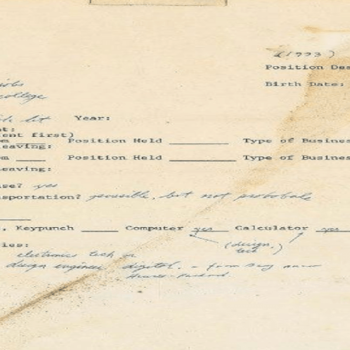 (1973)
Position Des
Birth Date:
jobs
college
lit Year:
t:
ent first)
m Position Held Type of Business
eaving:
m Position Held Type of Business
eaving:
se? yes
sportation? possible, but not probable
, Keypunch Computer yes Calculator yes
(design, tech)
ies:
electronics tech or
design engineer digital. - from Bay near
Hewitt-Packard